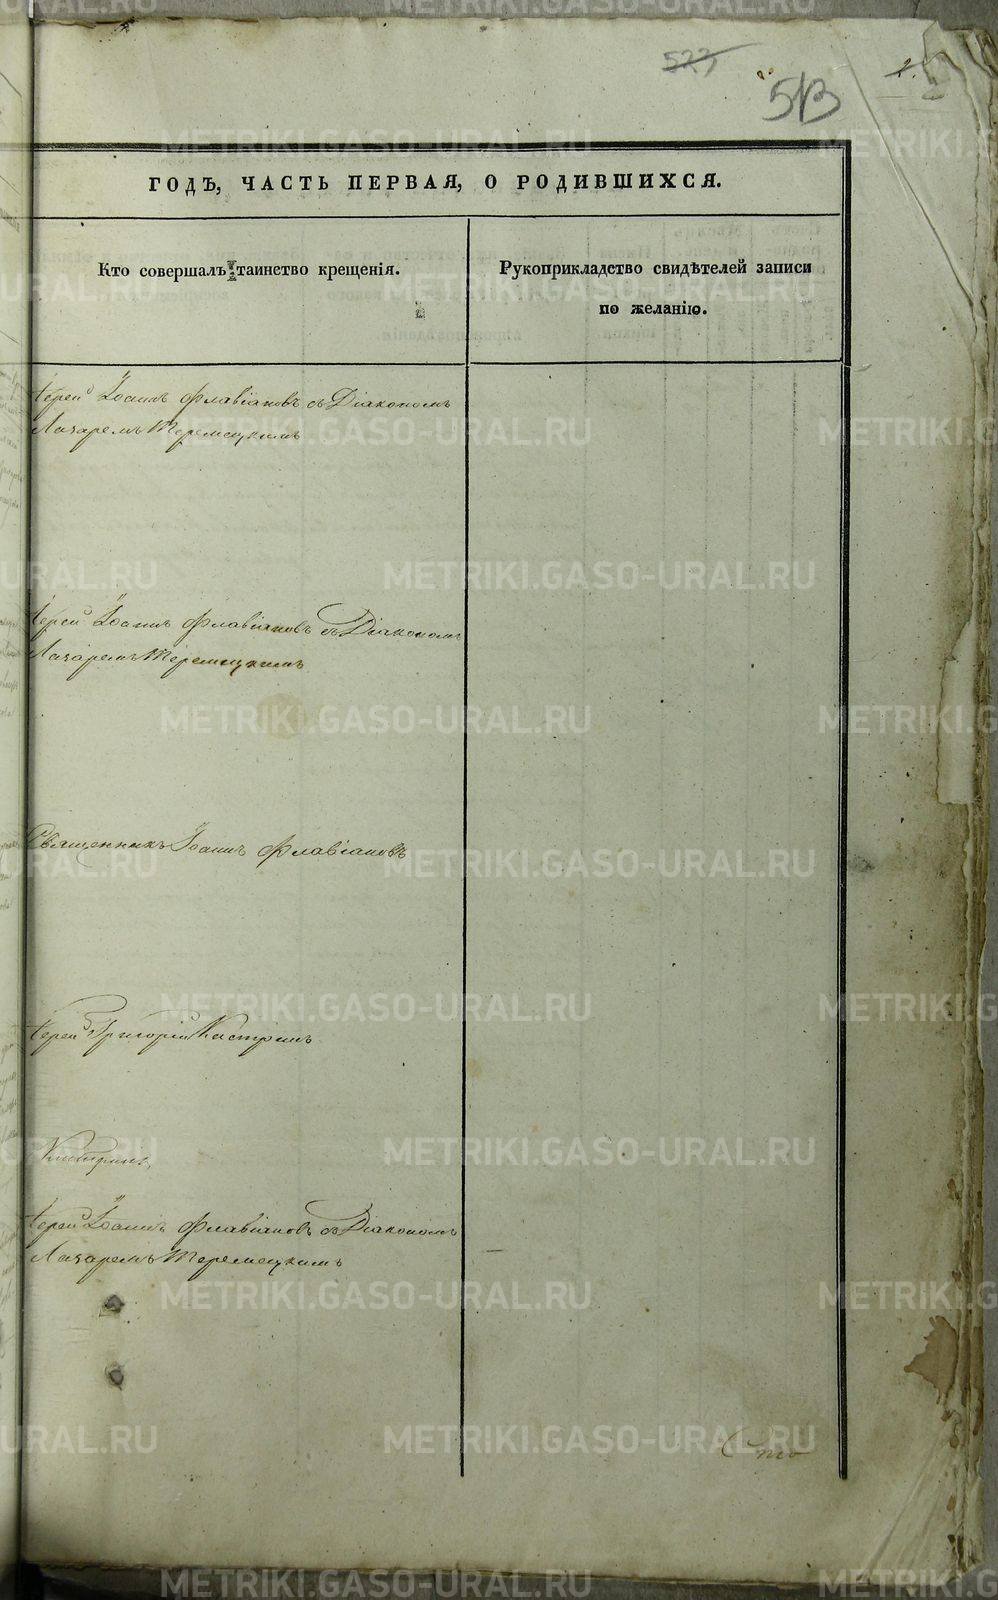 527
513
2.
ГОДЪ, ЧАСТЬ ПЕРВАЯ, О РОДИВШИХСЯ.
Кто совершалъ таинство крещенія.
Рукоприкладство свидѣтелей записи
по желанію.
Іерей Іоаннъ Флавіановъ съ Діакономъ
Лазаремъ Теремецкимъ
Іерей Іоаннъ Флавіановъ съ Діакономъ
Лазаремъ Теремецкимъ
Священникъ Іоаннъ Флавіановъ
Іерей Григорій Кастринъ
Кастринъ
Іерей Іоаннъ Флавіановъ съ Діакономъ
Лазаремъ Теремецкимъ
METRIKI.GASO-URAL.RU